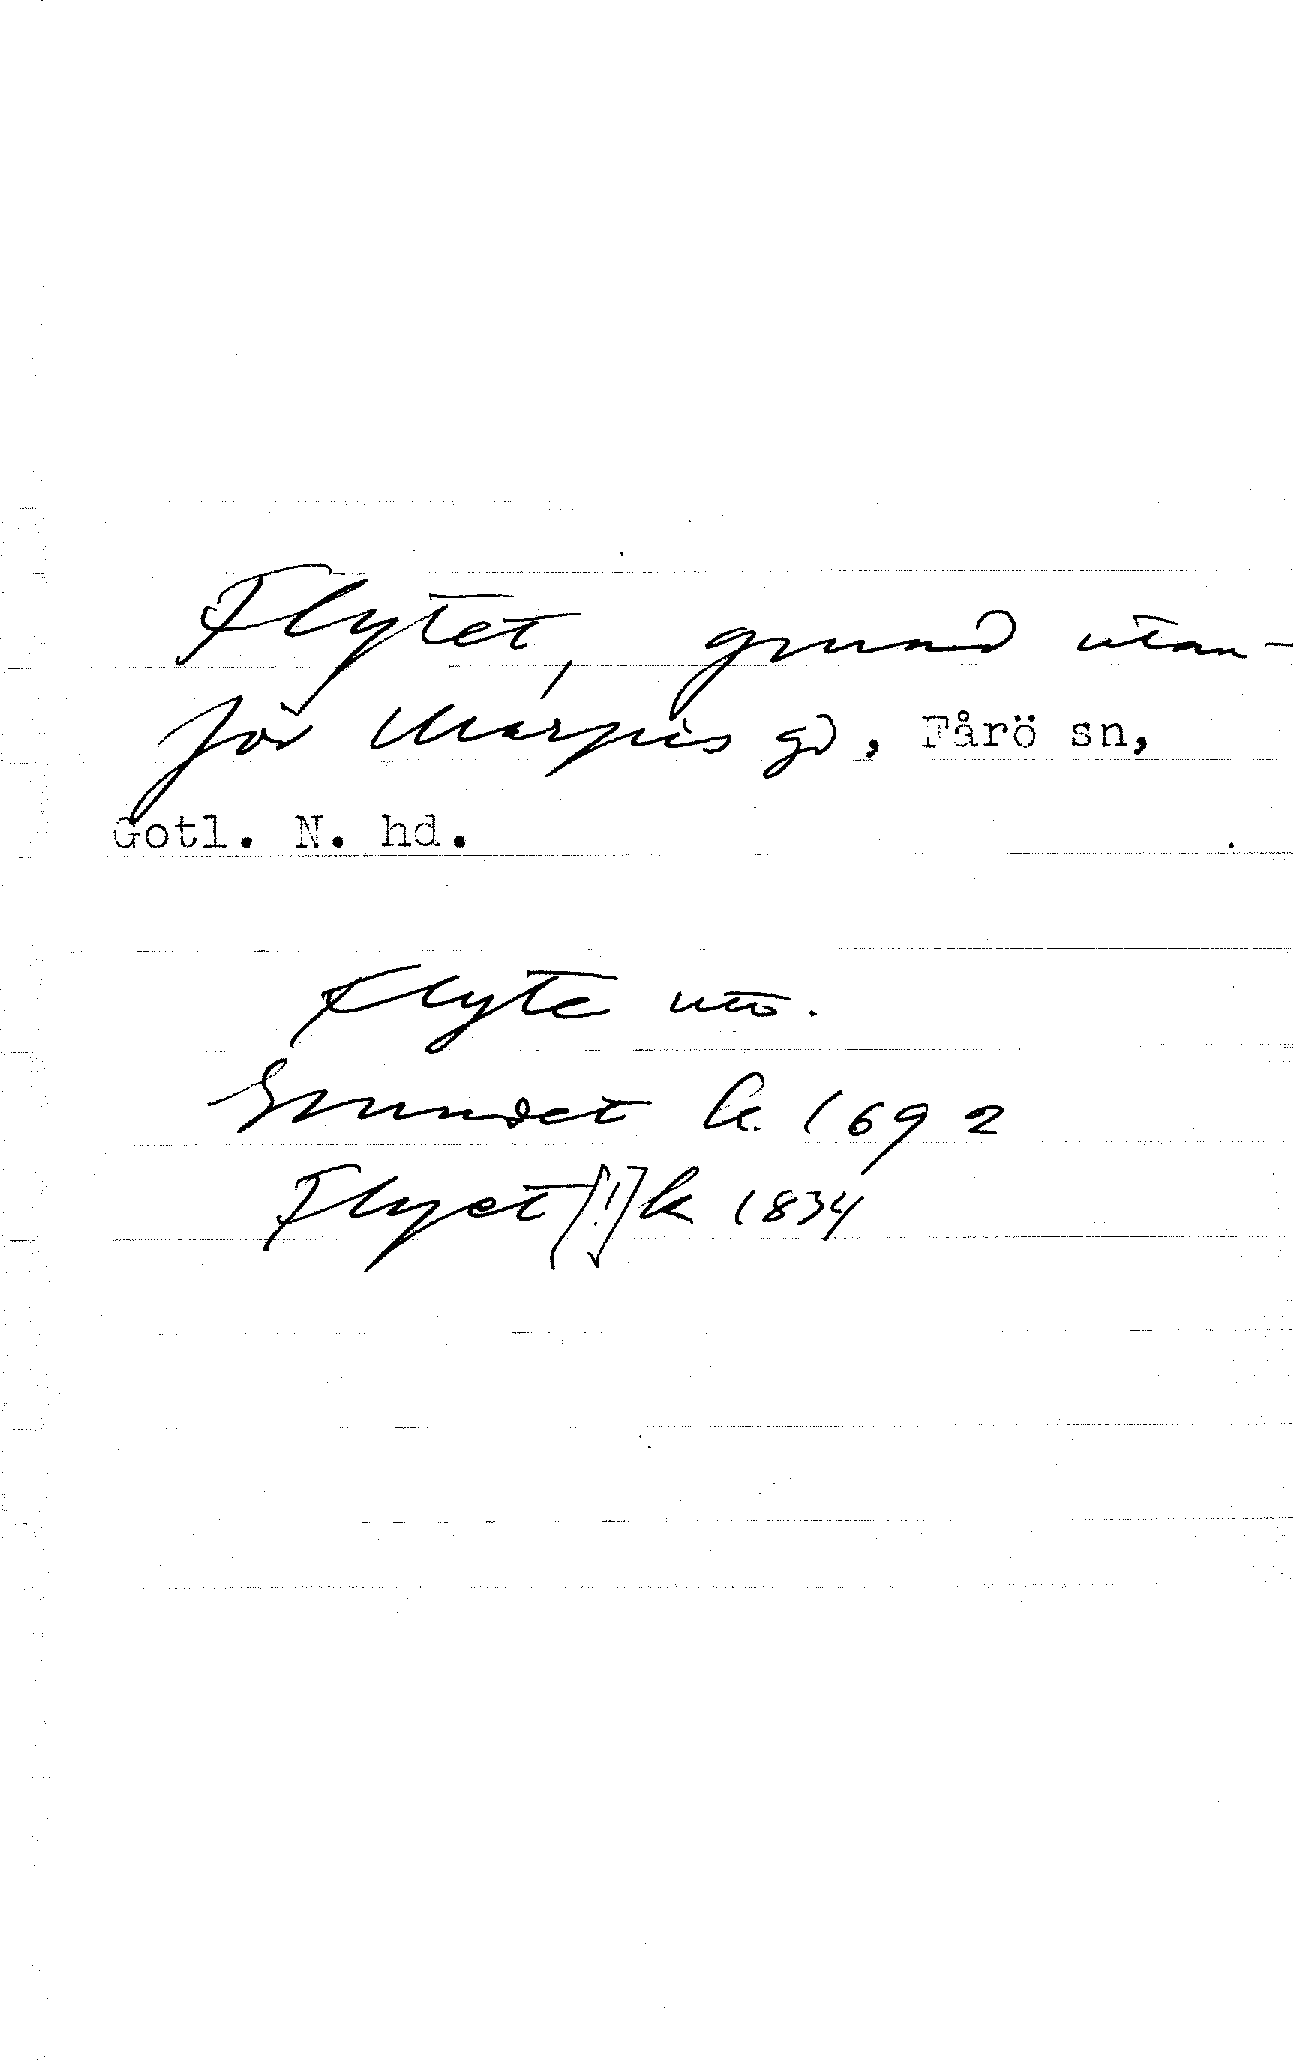 Flytet, grund utan-
för Marpis gd, Fårö sn,
Gotl. N. hd.
Flyte utt.
Grundet k. 1692
Flyet [!] k 1834